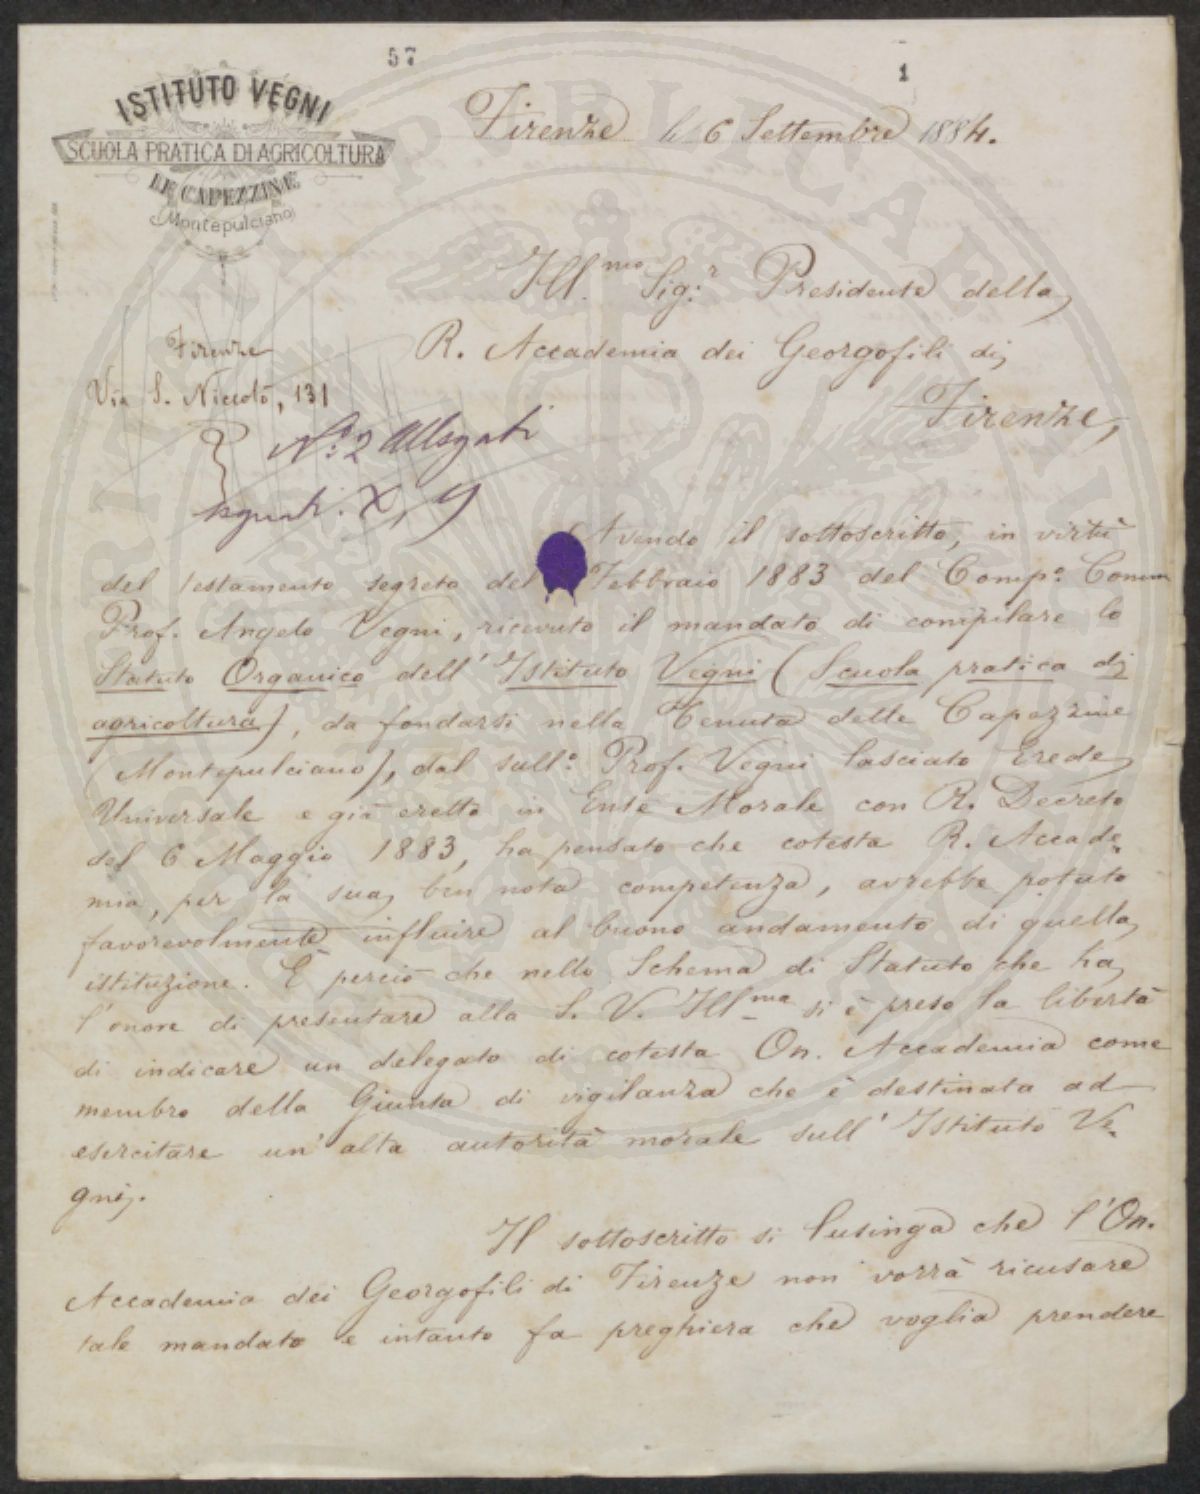 57
1
ISTITUTO VEGNI
SCUOLA PRATICA DI AGRICOLTURA
LE CAPEZZINE
(Montepulciano)
Firenze li 6 Settembre 1884.
Ill.mo Sig.r Presidente della
R. Accademia dei Georgofili di
Firenze
Firenze
Via S. Niccolò, 131
N.° 2 Allegati
segnati. X, Y
Avendo il sottoscritto, in virtù
del testamento segreto del Febbraio 1883 del Comp.o Comm
Prof. Angelo Vegni, ricevuto il mandato di compilare lo
Statuto Organico dell'Istituto Vegni (Scuola pratica di
agricoltura), da fondarsi nella Tenuta delle Capezzine
(Montepulciano), dal sull.o Prof. Vegni lasciato Erede
Universale e già eretto in Ente Morale con R. Decreto
del 6 Maggio 1883, ha pensato che cotesta R. Accade-
mia, per la sua ben nota competenza, avrebbe potuto
favorevolmente influire al buono andamento di quella
istituzione. È perciò che nello Schema di Statuto che ha
l'onore di presentare alla S. V. Ill.ma si è preso la libertà
di indicare un delegato di cotesta On. Accademia come
membro della Giunta di vigilanza che è destinata ad
esercitare un'alta autorità morale sull'Istituto Ve-
gni.
Il sottoscritto si lusinga che l'On.
Accademia dei Georgofili di Firenze non vorrà ricusare
tale mandato e intanto fa preghiera che voglia prendere